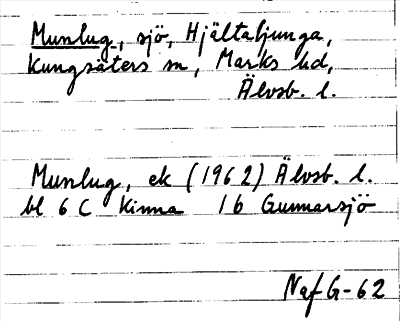 Munlug, sjö, Hjältaljunga,
Kungsäters sn, Marks hd,
Älvsb. l.
Munlug, ek (1962) Älvsb. l.
bl 6 C Kinna 1 b Gunnarsjö
Naf G-62